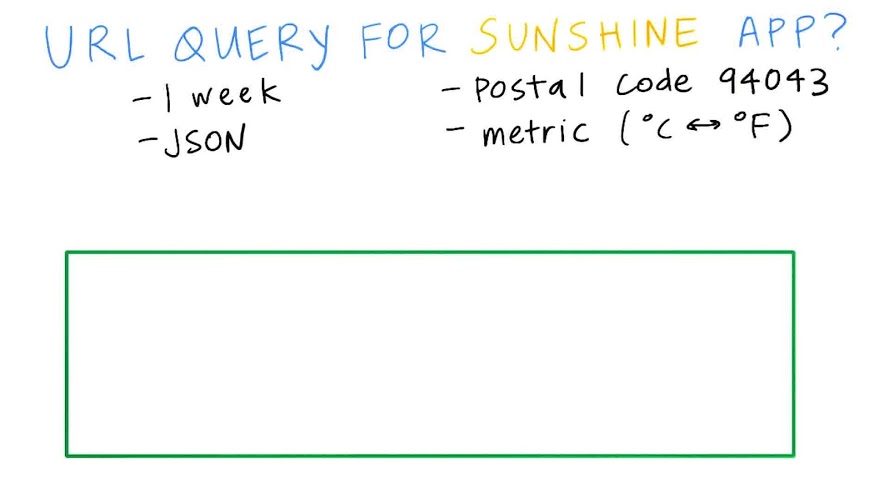 URL QUERY FOR SUNSHINE APP?
- 1 week
- JSON
- postal code 94043
- metric (°C ↔ °F)